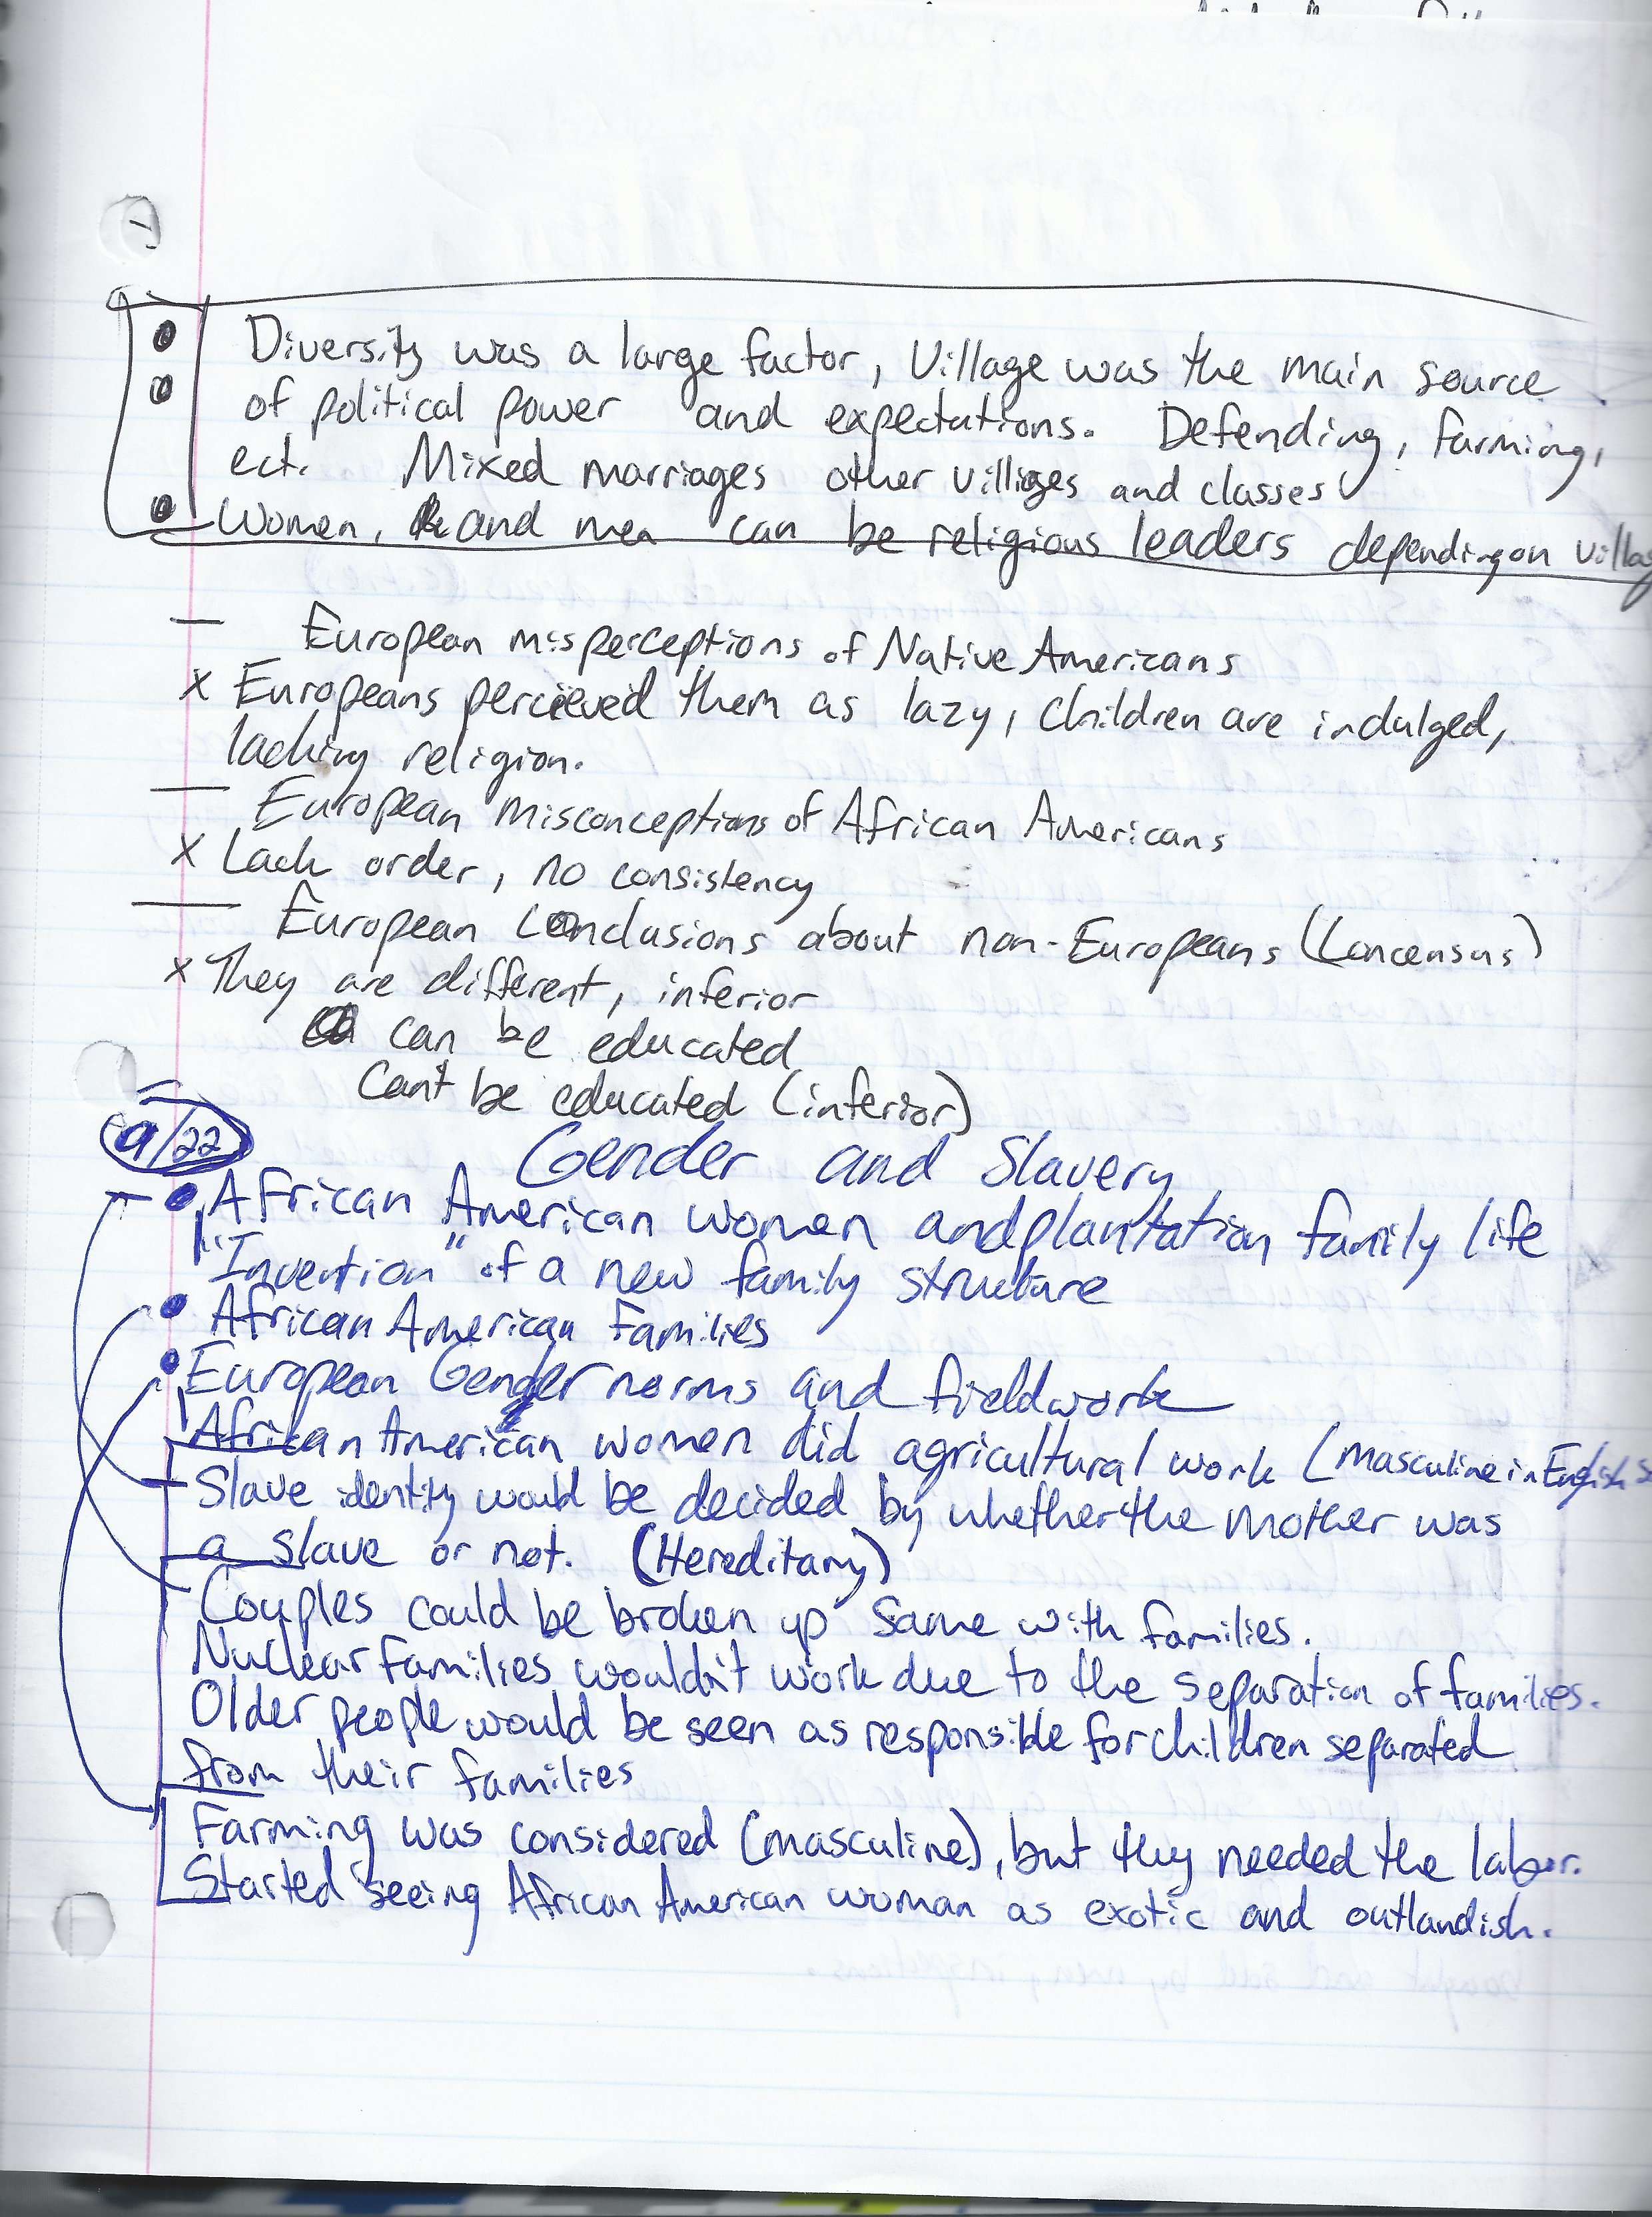 Diversity was a large factor, Village was the main source
of political power and expectations. Defending, farming,
ect. Mixed marriages other villiges and classes
Women, and men can be religious leaders depending on villag
— European misperceptions of Native Americans
x Europeans percieved them as lazy, Children are indulged,
lacking religion.
— European Misconceptions of African Americans
x Lack order, no consistency
— European Conclusions about non-Europeans (Concensus)
x They are different, inferior
can be educated
Can't be educated (inferior)
9/22
Gender and Slavery
• African American women and plantation family life
"Invention" of a new family structure
• African American Families
• European Gender norms and fieldwork
African American women did agricultural work (masculine in English
Slave identity would be decided by whether the mother was
a slave or not. (Hereditary)
Couples could be broken up same with families.
Nuclear families wouldn't work due to the separation of families.
Older people would be seen as responsible for children separated
from their families
Farming was considered (masculine), but they needed the labor.
Started seeing African American woman as exotic and outlandish.